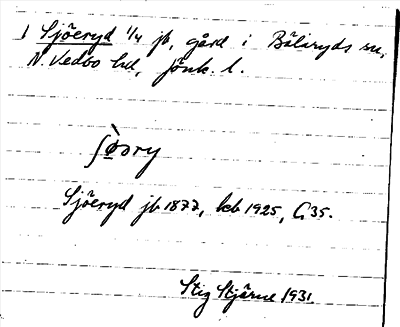 1 Sjöeryd 1/4 jb, gård i Bälaryds sn,
N. Vedbo hd, Jönk. l.
ʃø̀ əry
Sjöeryd jb 1877, kcb 1925, G 35.
Stig Stjärne 1931